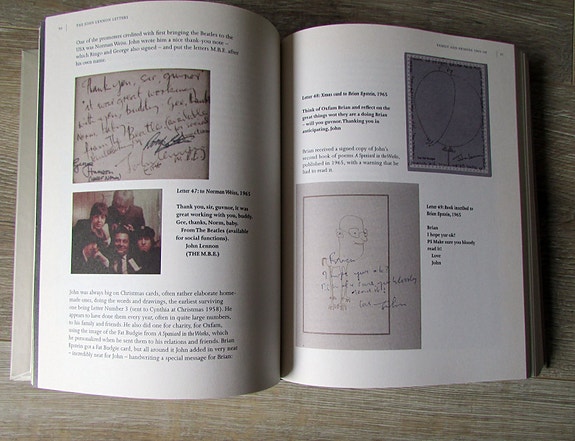 THE JOHN LENNON LETTERS
One of the promoters credited with first bringing the Beatles to the
USA was Norman Weiss. John wrote him a nice thank-you note –
which Ringo and George also signed – and put the letters M.B.E. after
his own name.
Thank you, Sir, guvnor
it was great working
with you, buddy. Gee, thanks
Norm, baby.
From The Beatles (available
for social functions)
George
Harrison
John Lennon
Letter 47: to Norman Weiss, 1965
Thank you, sir, guvnor, it was
great working with you, buddy.
Gee, thanks, Norm, baby.
From The Beatles (available
for social functions).
John Lennon
(THE M.B.E.)
John was always big on Christmas cards, often rather elaborate home-
made ones, doing the words and drawings, the earliest surviving
one being Letter Number 3 (sent to Cynthia at Christmas 1958). He
appears to have done them every year, often in quite large numbers,
to his family and friends. He also did one for charity, for Oxfam,
using the image of the Fat Budgie from A Spaniard in the Works, which
he personalized when he sent them to his relations and friends. Brian
Epstein got a Fat Budgie card, but all around it John added in very neat
– incredibly neat for John – handwriting a special message for Brian:
Letter 48: Xmas card to Brian Epstein, 1965
Think of Oxfam Brian and reflect on the
great things wot they are a doing Brian
– will you guvnor. Thanking you in
anticipating, John
Brian received a signed copy of John's
second book of poems A Spaniard in the Works,
published in 1965, with a warning that he
had to read it.
Letter 49: Book inscribed to
Brian Epstein, 1965
Brian
I hope yur ok?
PS Make sure you bloody
read it!
Love
John